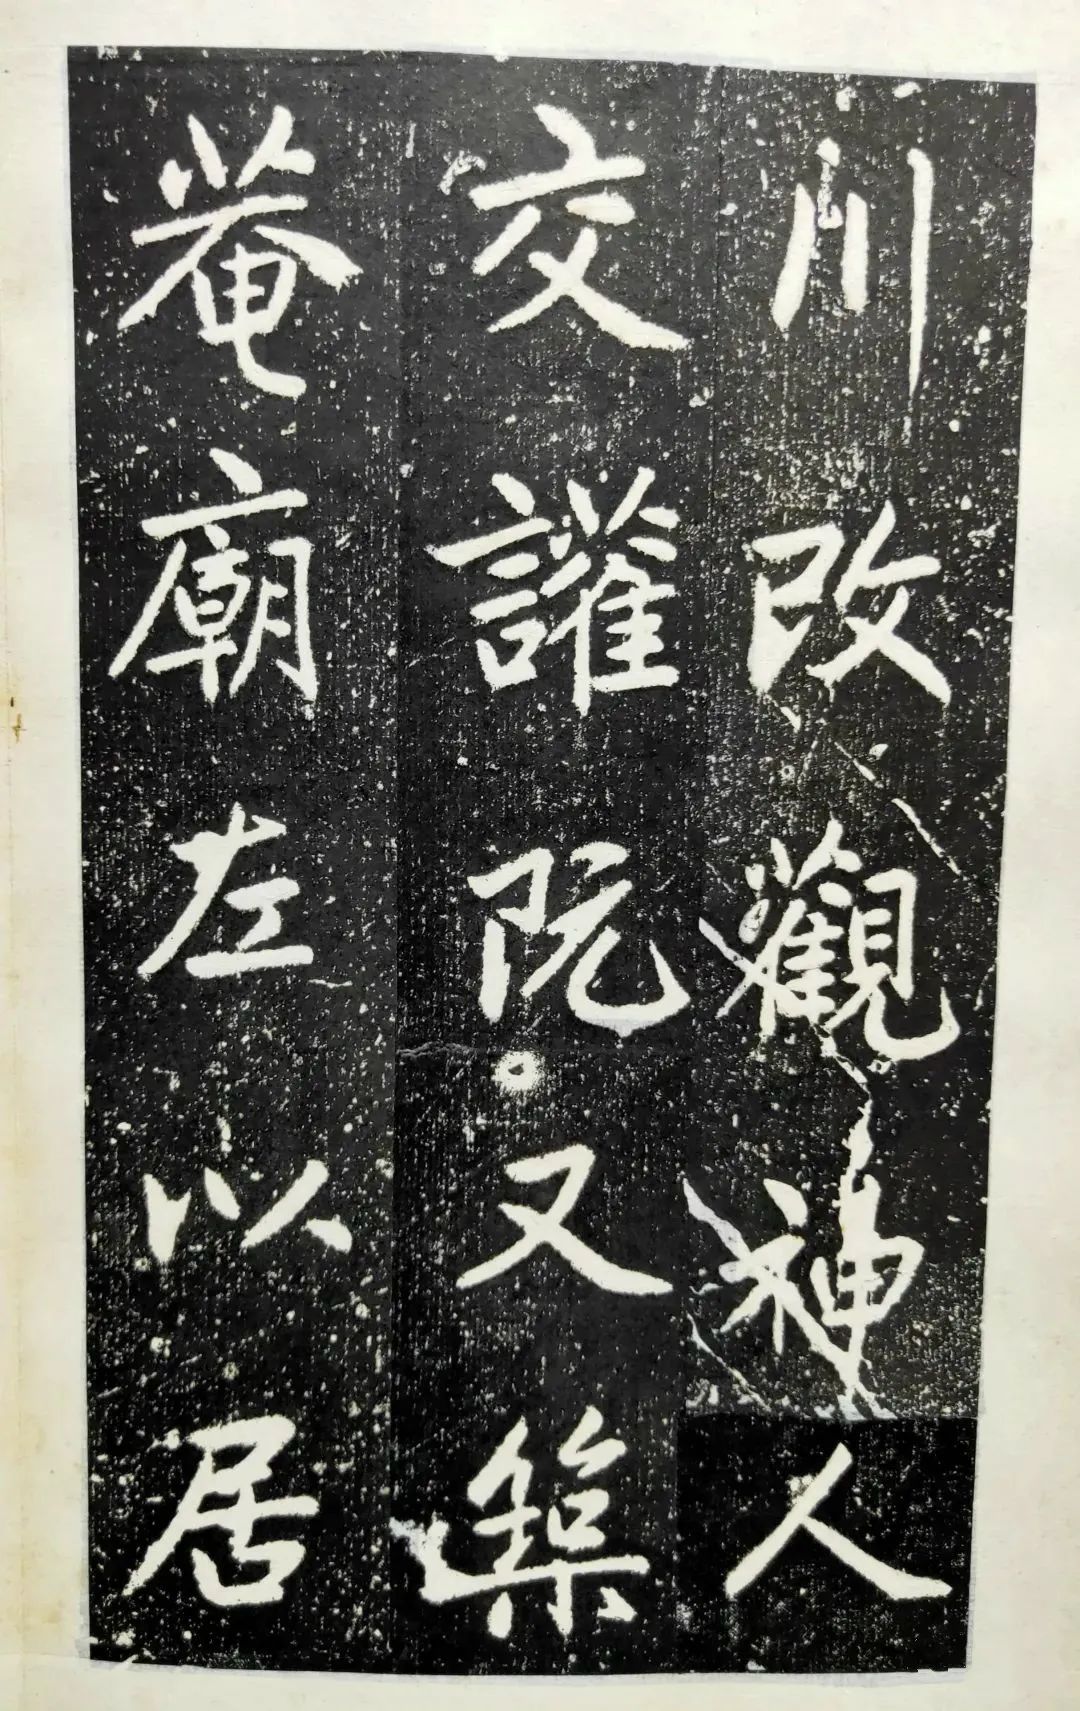 川改觀神人
交讙既又築
菴廟左以居